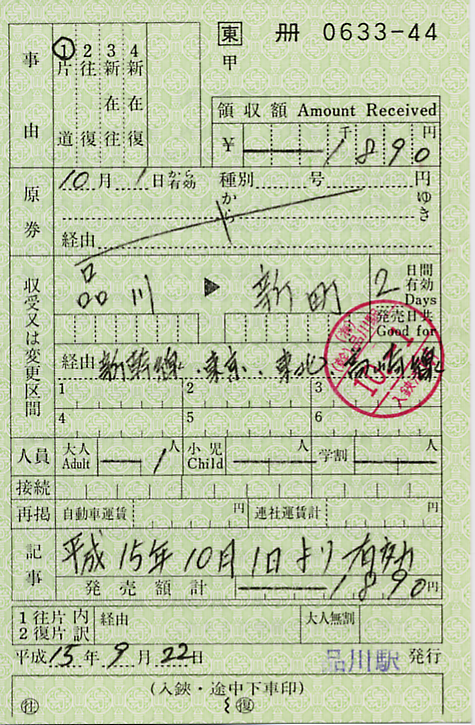 東 冊 0633-44
甲
事由
1 片道
2 往復
3 新在往
4 新在復
領収額 Amount Received
¥ 千 円
1890
原券
10月 1日から有効 種別 号 円
から ゆき
経由
収受又は変更区間
品川 ▶ 新町 2 日間有効 Days
発売日共 Good for
経由 新幹線、東京、東北、高崎線
1 2 3
4 5 6
人員 大人 Adult 1人 小児 Child 人 学割 人
接続
再掲 自動車運賃 円 連社運賃計 円
記事 平成15年10月1日より有効
発売額計 1890円
1 往片 内 経由 大人無割
2 復片 訳
平成15年9月22日 品川駅 発行
(入鋏・途中下車印)
往 復